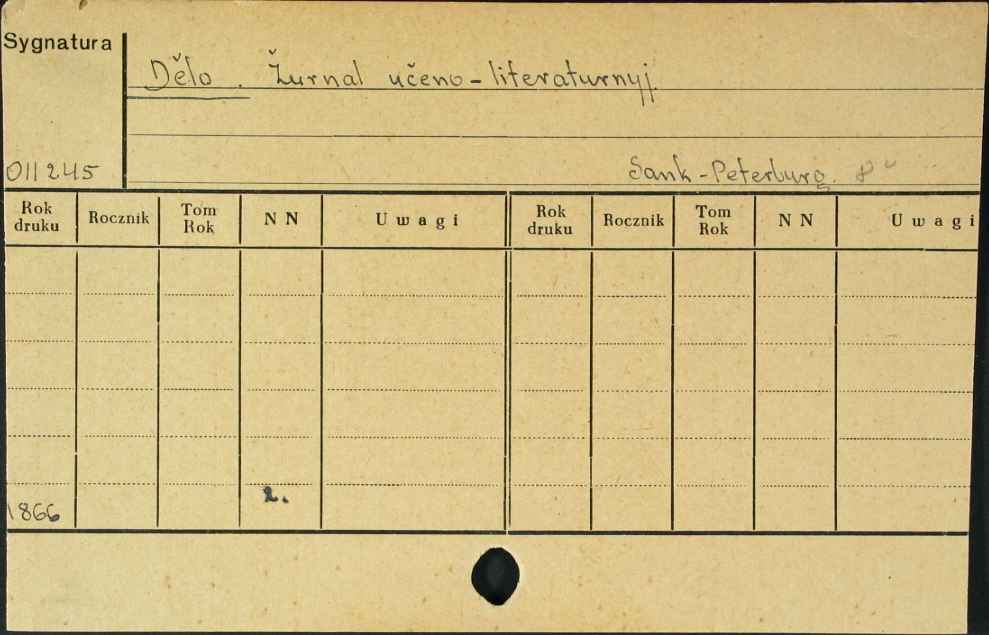 Sygnatura
Dělo. Žurnal učeno-literaturnyj.
011245
Sank-Peterburg. 8°
Rok druku Rocznik Tom Rok NN Uwagi Rok druku Rocznik Tom Rok NN Uwagi
2.
1866